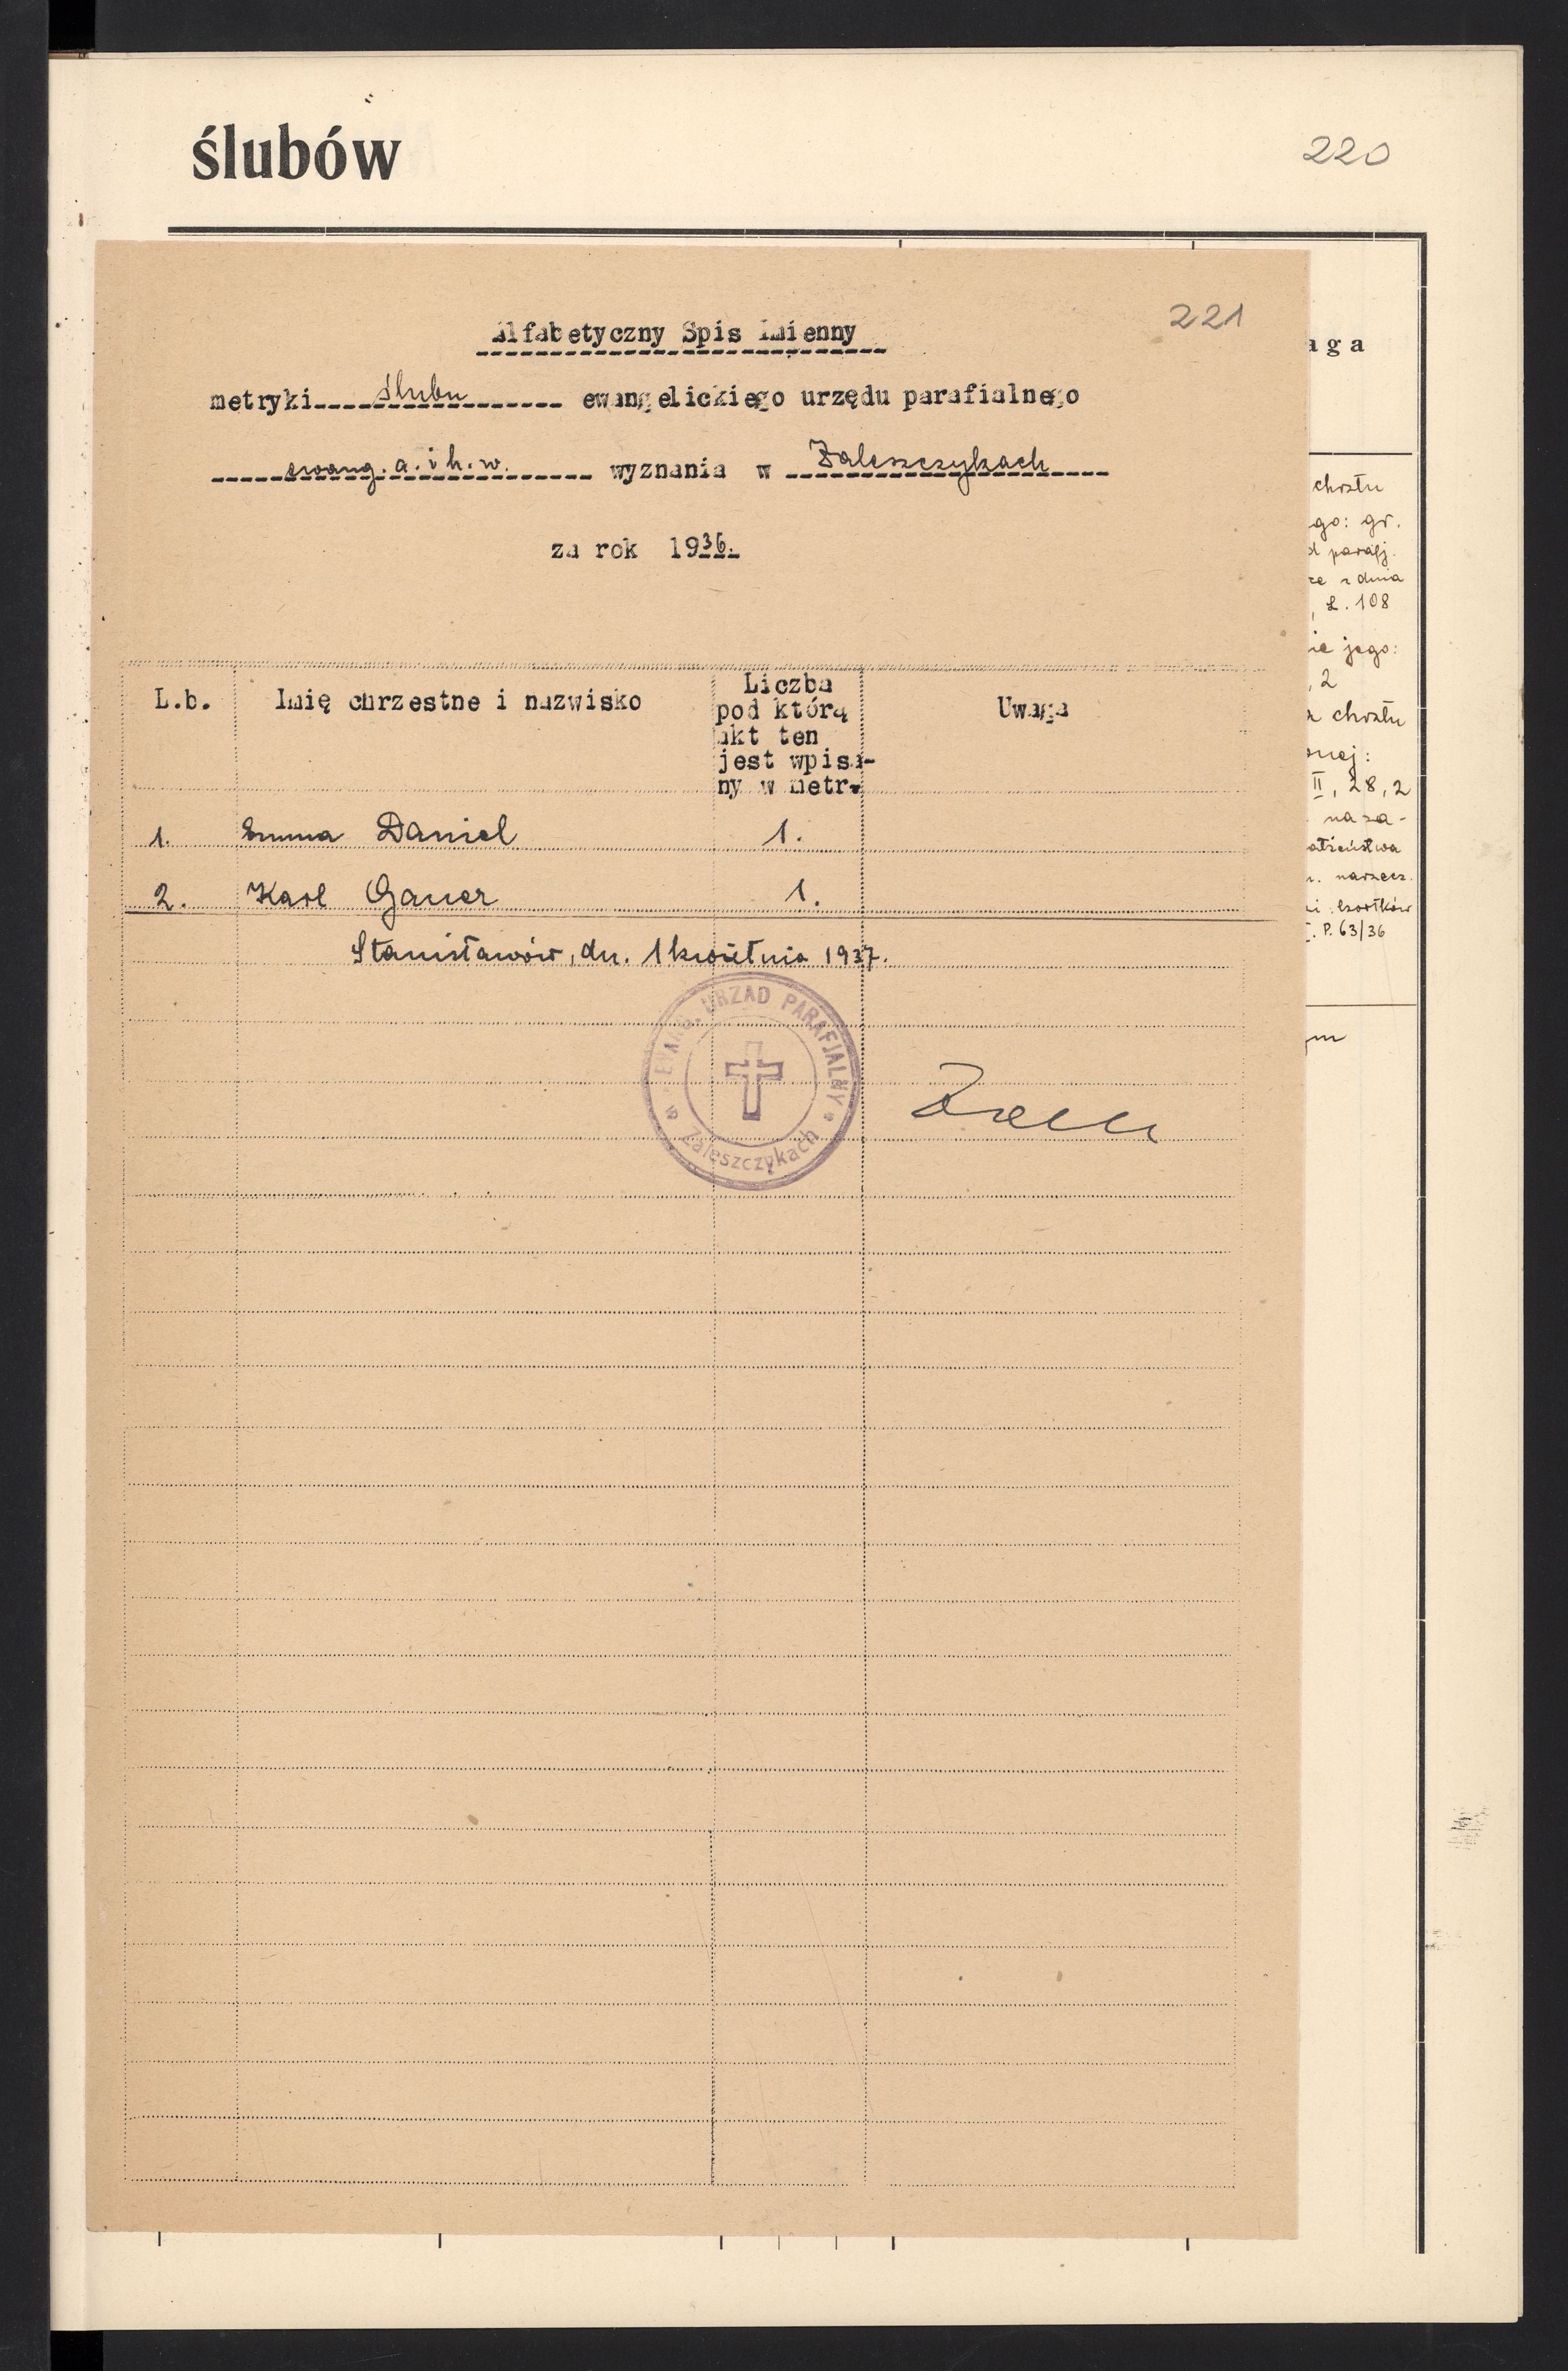 ślubów
220
221
Alfabetyczny Spis Imienny
metryki ślubu ewangelickiego urzędu parafialnego
ewang. a. i h. w. wyznania w Zaleszczykach
za rok 1936.
L.b.
Imię chrzestne i nazwisko
Liczba
pod którą
akt ten
jest wpisa-
ny w metr.
Uwaga
1. Emma Daniel 1.
2. Karl Gauer 1.
Stanisławów, dn. 1 kwietnia 1937.
EWANG. URZAD PARAFJALNY
w Zaleszczykach
aga
chrztu
go: gr.
z dnia
, L. 108
jego:
, 2
chrztu
II, 28, 2
na za-
narzecz.
P. 63/36